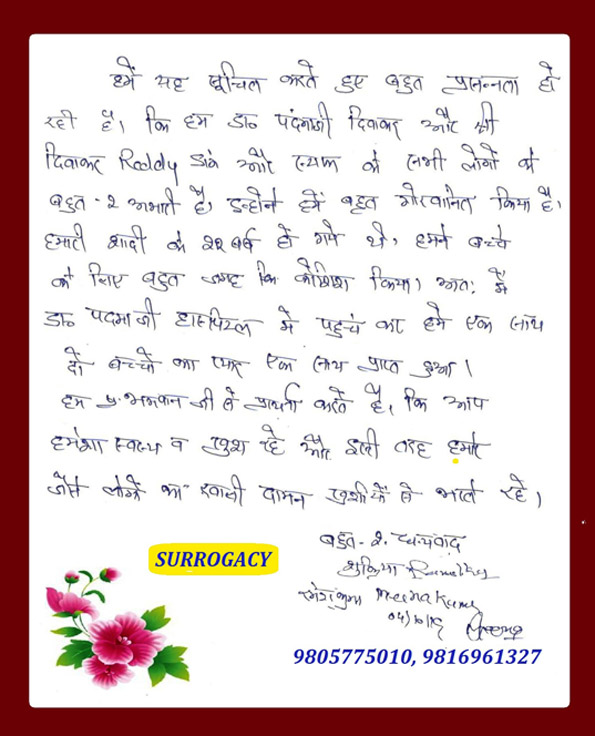 हमें यह सूचित करते हुए बहुत प्रसन्नता हो
रही है। कि हम डा० पदमाजी दिवाकर और श्री
दिवाकर Reddy और स्टाफ के सभी लोगों के
बहुत-२ अभारी है, इन्होंने हमें बहुत गोरवानित किया है,
हमारी शादी के २२ वर्ष हो गये थे, हमने बच्चे
के लिए बहुत जगह कि कोशिश किया। अतः में
डा० पदमाजी हास्पिटल में पहुंच कर हमें एक साथ
दो बच्चों का प्यार एक साथ प्राप्त हुआ।
हम प्र० भगवान जी से प्रार्थना करते है, कि आप
हमेशा स्वस्थ व खुश रहे और इसी तरह हमारे
जैसे लोगों का खाली दामन खुशीयों से भरते रहे।
बहुत-२ धन्यवाद
शुक्रिया
Meena Kumari
SURROGACY
9805775010, 9816961327